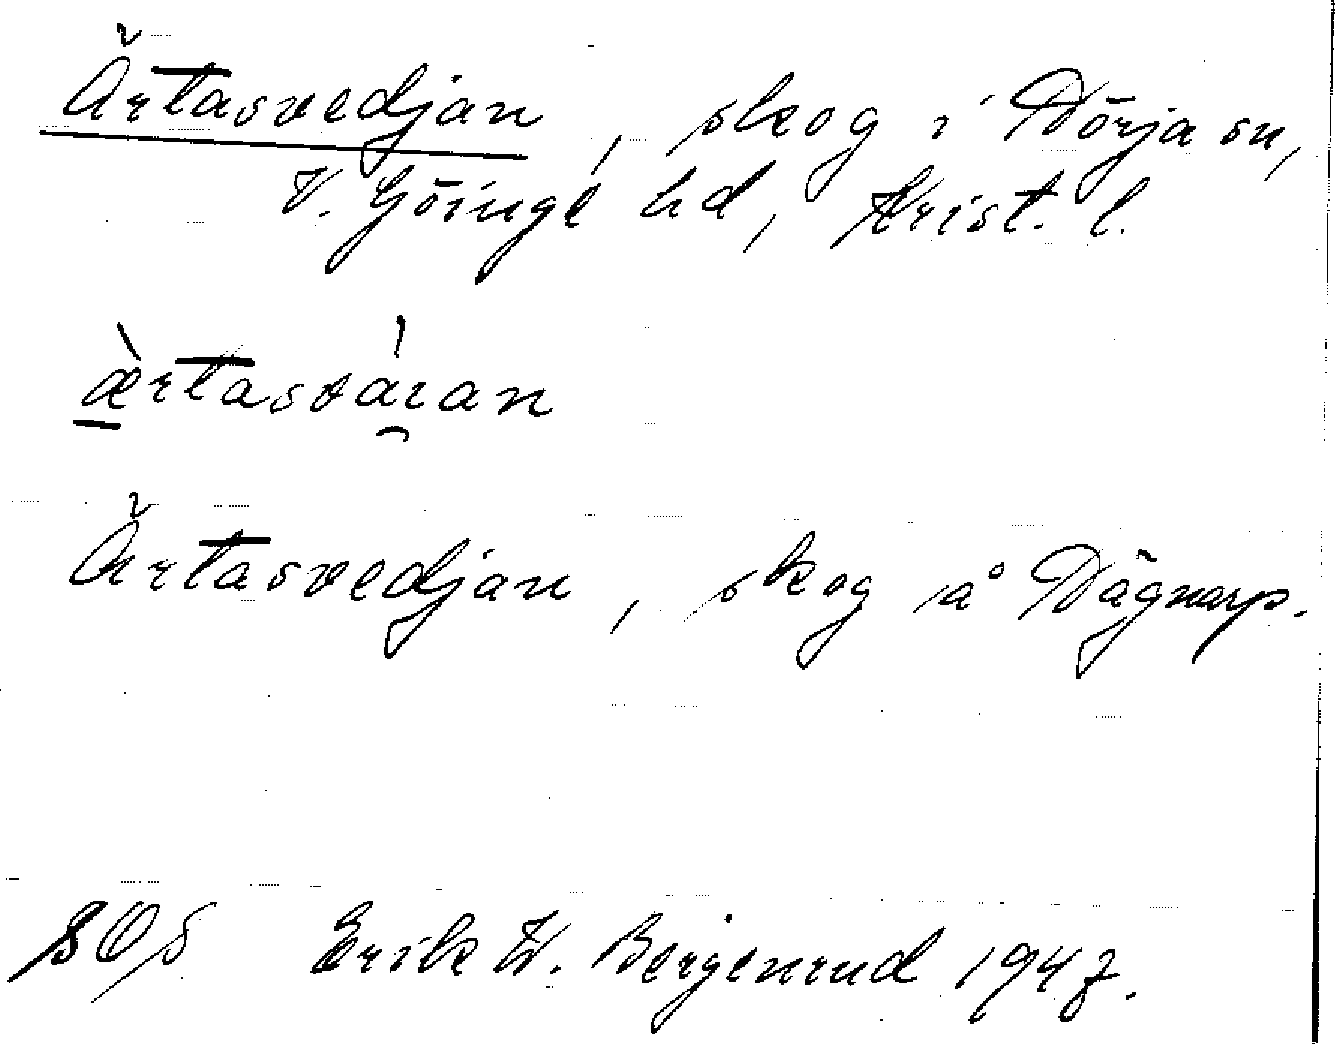 Ärtasvedjan, skog i Dörja sn,
V. Göinge hd, Krist. l.
ærtasváran
Ärtasvedjan, skog å Dägnarp.
SOS Erik W. Bergenrud 1947.